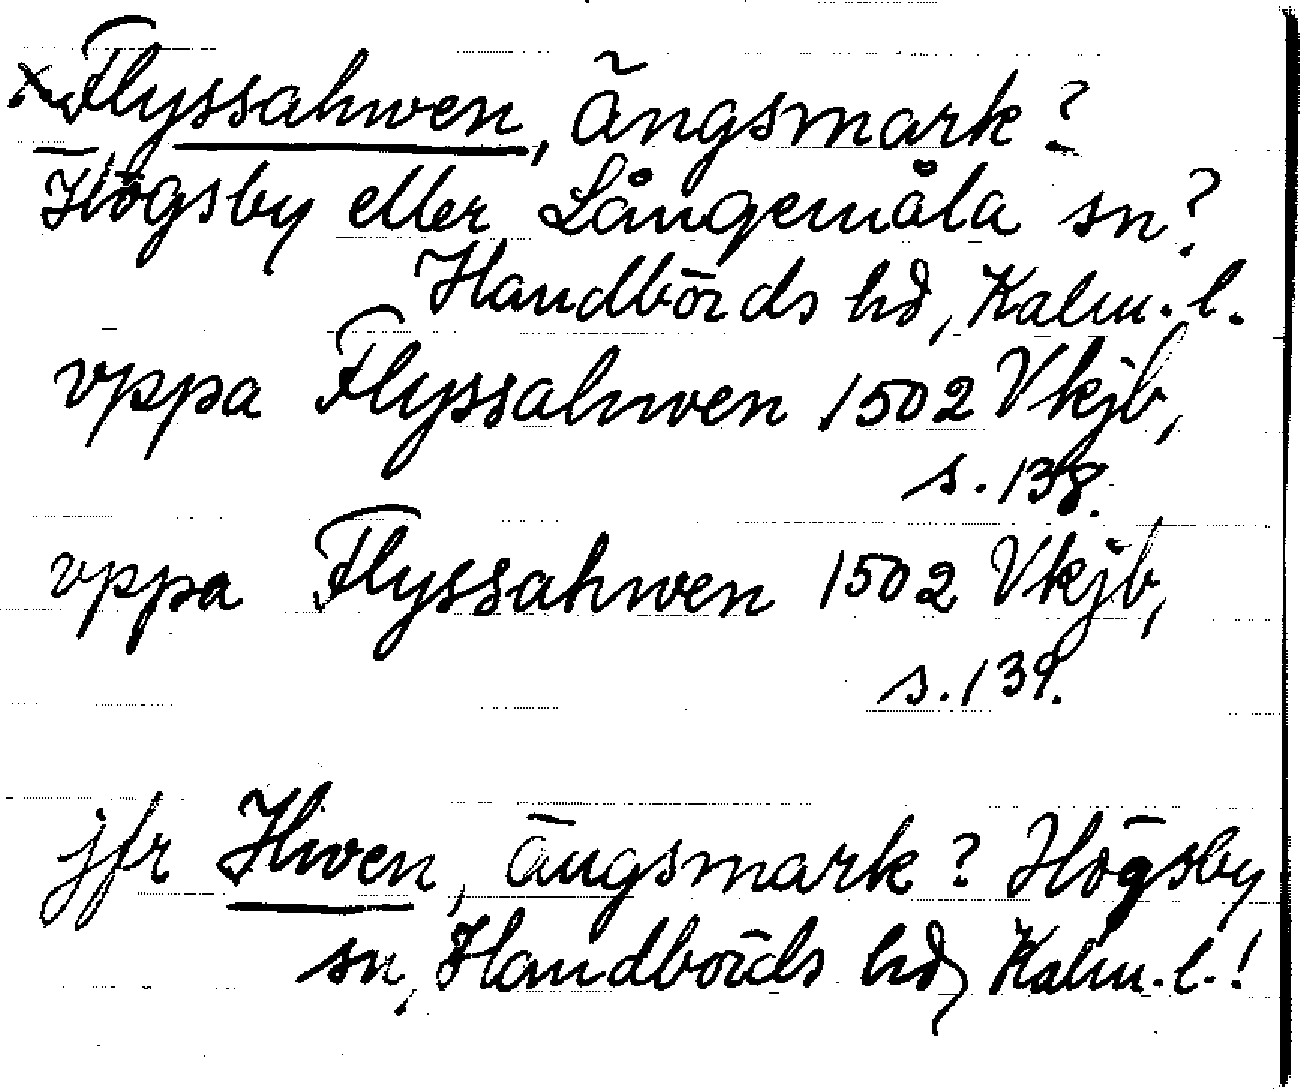 x Flyssahwen, ängsmark?
Högsby eller Långemåla sn?
Handbörds hd, Kalm. l.
vppa Flyssahwen 1502 Vkjb,
s. 138.
vppa Flyssahwen 1502 Vkjb,
s. 139.
jfr Hwen, ängsmark? Högsby
sn, Handbörds hd, Kalm. l.!